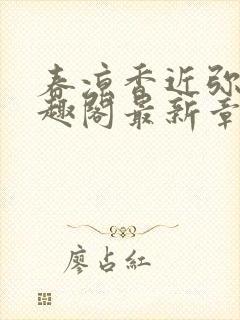 春凉香近弥
趣阁最新章
廖占红